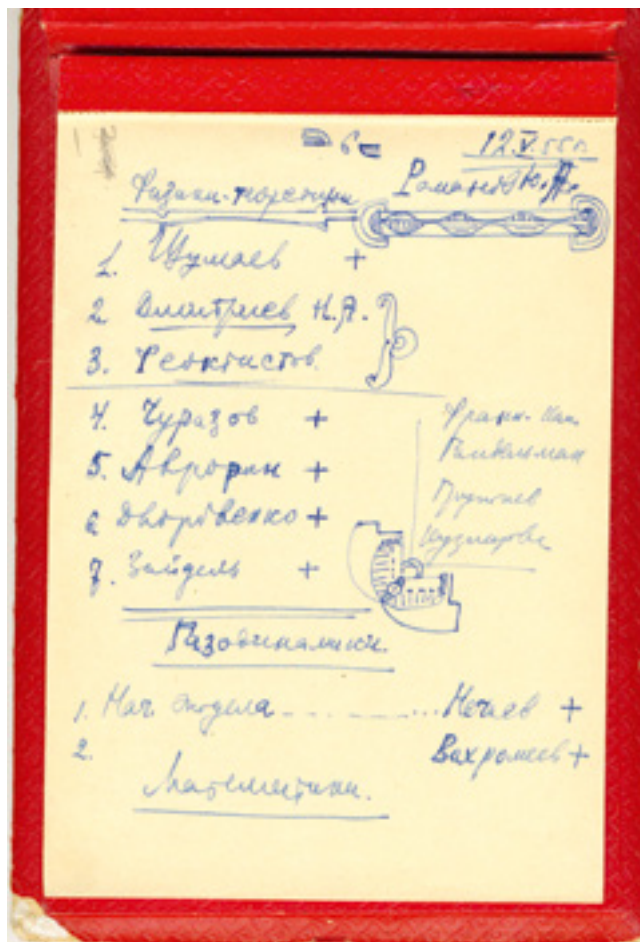 12.V.55г.
Физики-теоретики Романов Ю.А.
1. Шумаев +
2. Дмитриев Н.А.
3. Феоктистов
4. Чуразов +
5. Аврорин +
6. Дворовенко +
7. Зайдель +
Франк-Кам.
Гандельман
Газодинамики.
1. Нач. отдела ... Нечаев +
2. Вахрамеев +
Математики.